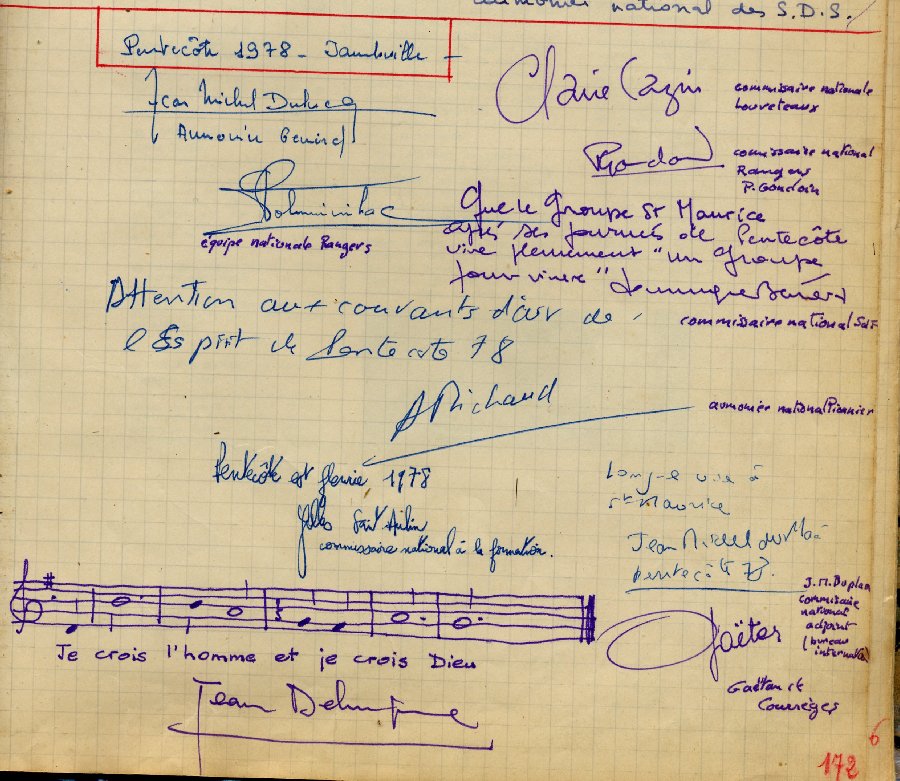 aumonier national des S.D.S.
Pentecôte 1978 - Jambville -
Jean Michel
Aumônier Général
Claire Cazin
commissaire nationale
Louveteaux
commissaire national
Rangers
P. Goudoin
équipe nationale Rangers
Que le Groupe St Maurice
après ses journées de Pentecôte
vive pleinement "un Groupe
pour vivre"
commissaire national SdF
Attention aux courants d'air de
l'Esprit de Pentecote 78
A Richaud
aumonier national Pionnier
Pentecôte est fleurie 1978
Gilles Saint Aubin
commissaire national à la formation.
Longue vie à
St Maurice
Jean Michel
pentecôte 78.
J.M. Duplan
commissaire
national
adjoint
(bureau
international)
Je crois l'homme et je crois Dieu
Jean
Gaëtan
Gaëtan de
Courrèges
6
172